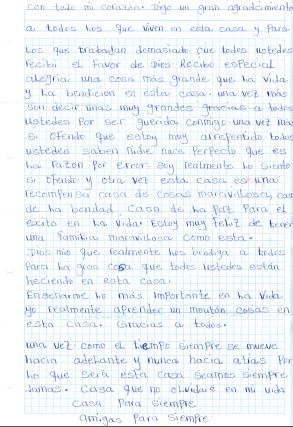 con todo mi corazón. Digo un gran agradcimiento
a todos los que viven en esta casa y Para
Los que trabajan demasiado que todos ustedes
recibi el favor de Dios Recibo especial
alegria una cosa más grande que la vida
y la bendicion en esta casa. una vez más
son decir unas muy grandes gracias a todos
Ustedes Por ser querida conmigo una vez más
si Ofende que estoy muy arrepentido. todos
ustedes saben nadie nace Perfecto que es
la razon Por error. soy realmente lo siento
si Ofende y otra vez esta casa es una
recompensa casa de cosas maravillosa, cas
de la bondad. Casa de la Paz Para el
exito en la vida. Estoy muy feliz de tener
una familia maravillosa como esta.
Dios mio que realmente los bendiga a todos
Para la gran cosa que todos ustedes están
heciendo en esta casa.
Enseñarme lo más importante en la vida
yo realmente aprender un montón cosas en
esta casa. Gracias a todos.
una vez como el tiempo siempre se mueve
hacia adelante y nunca hacia atras Por
lo que será esta casa seamos siempre
Jamas. Casa que no olvidare en mi vida
Casa Para siempre
amigas Para siempre